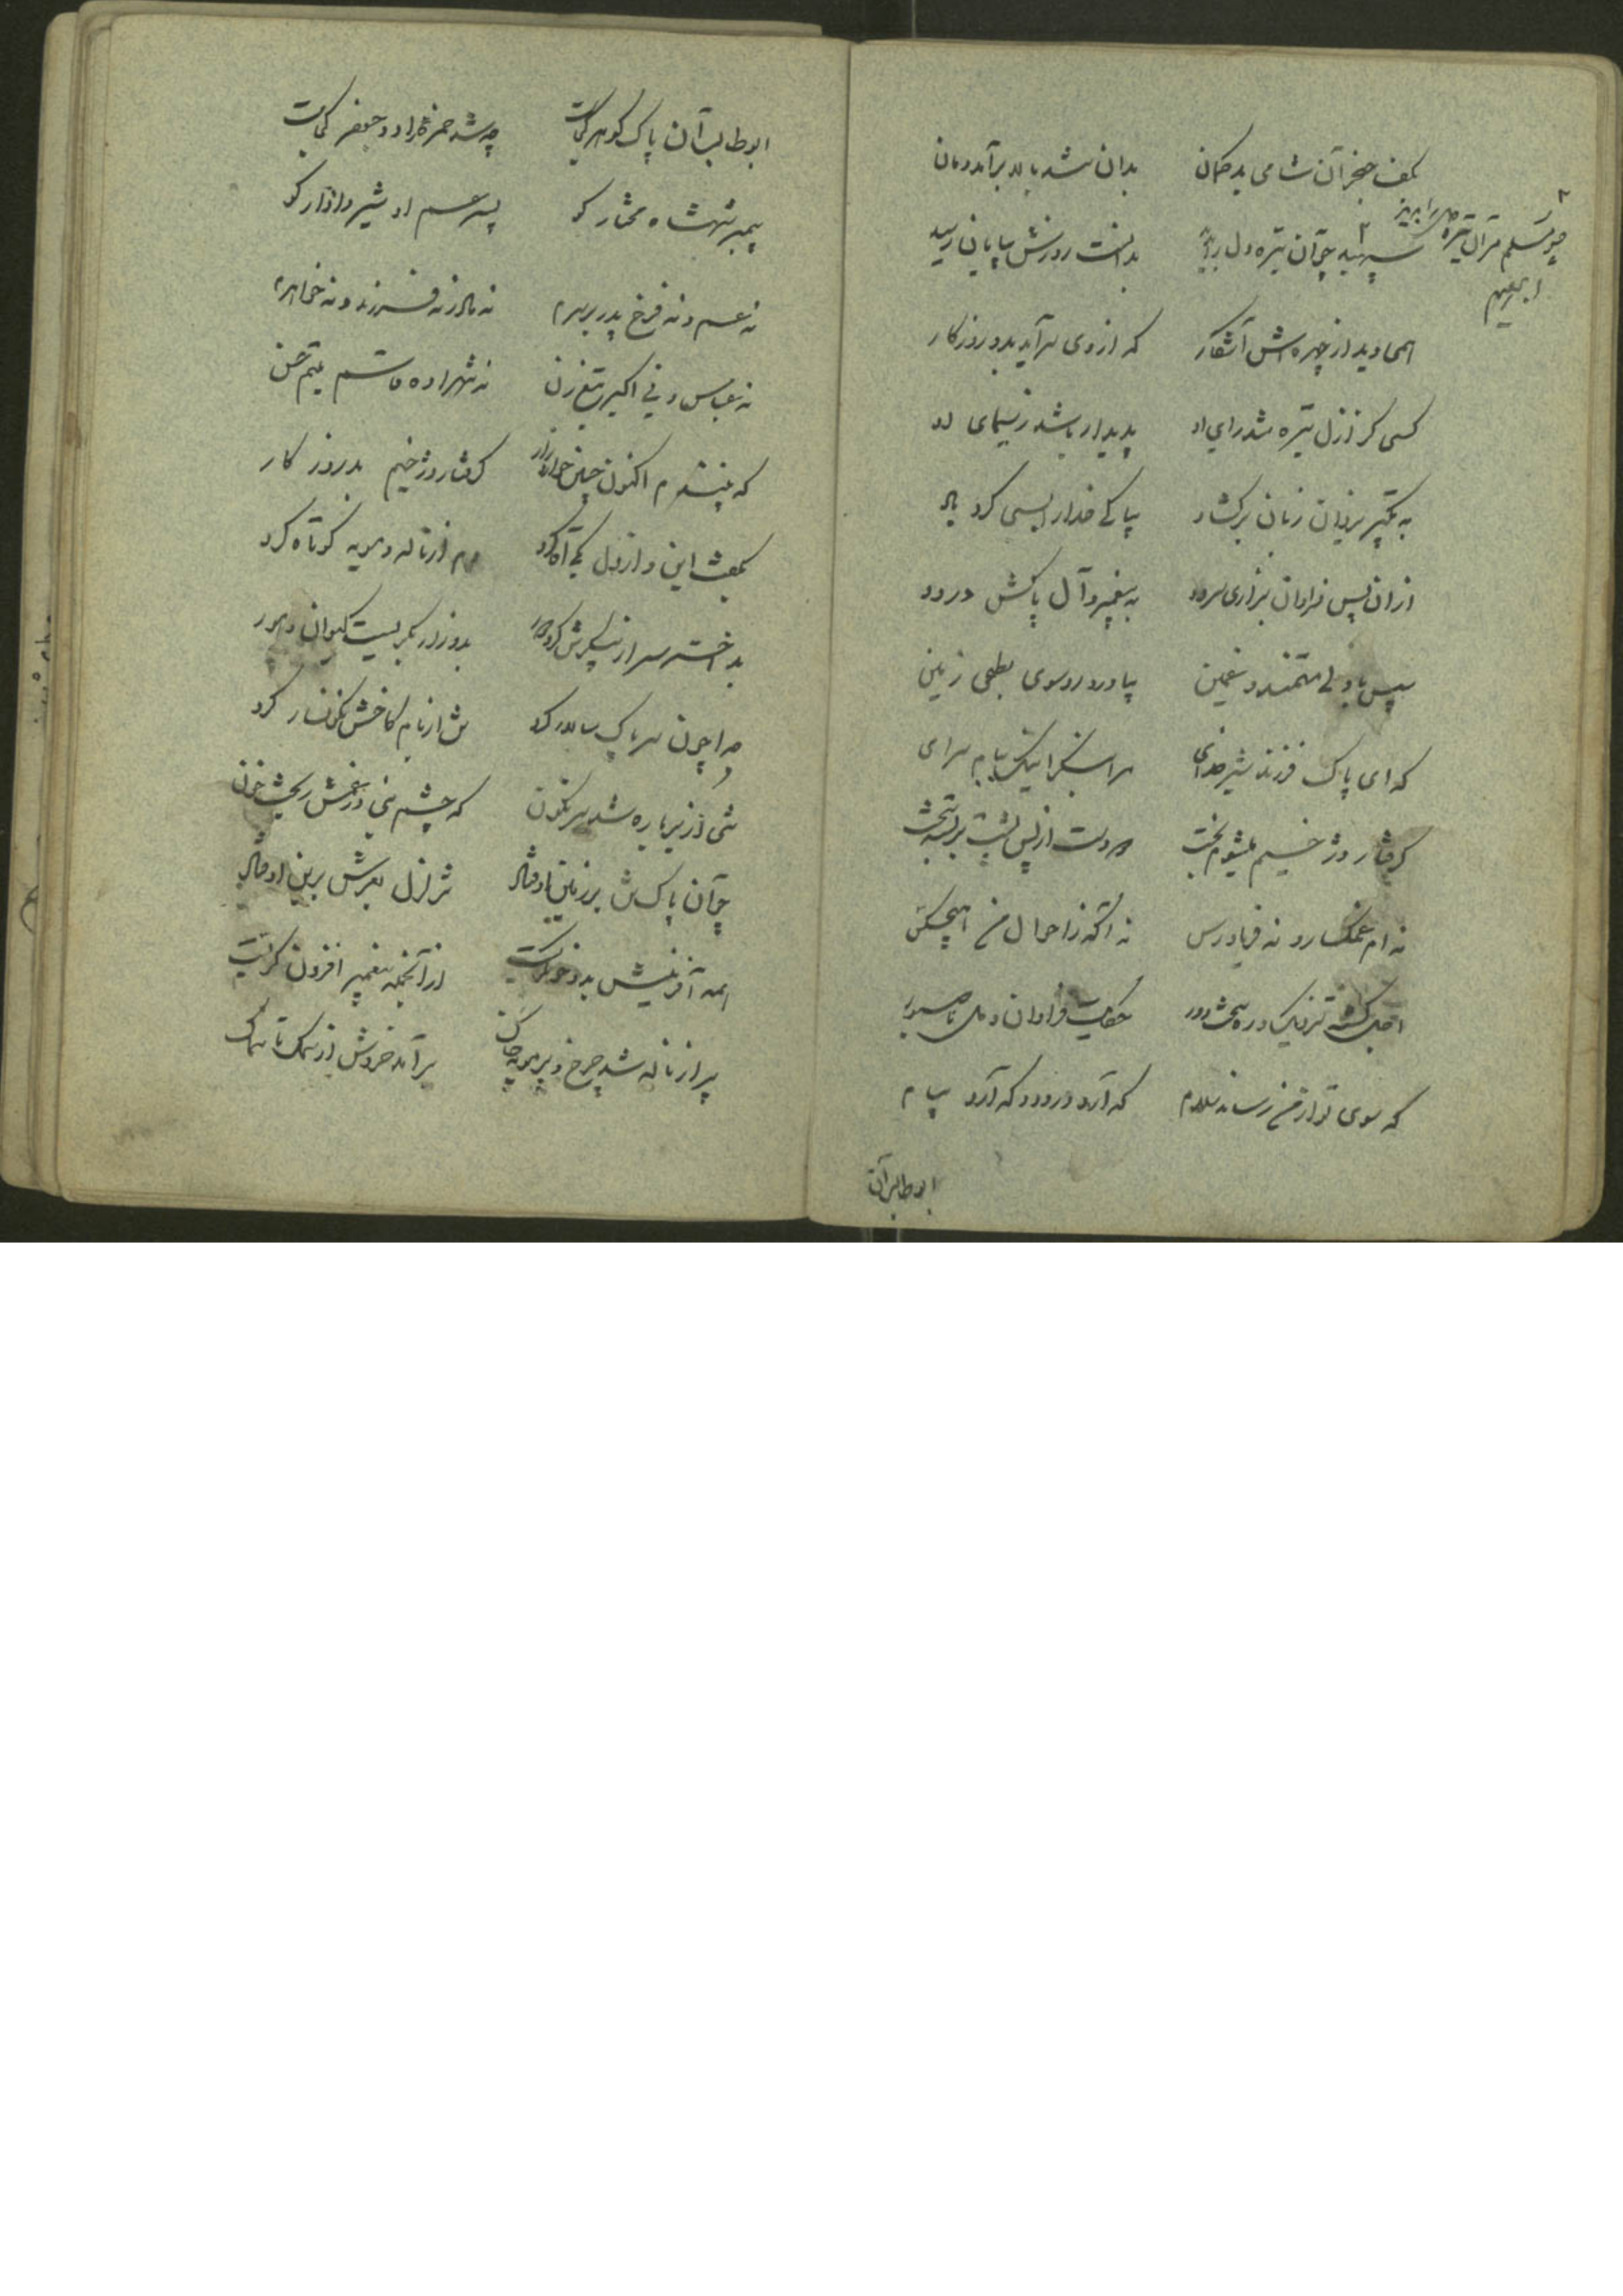 بکف خنجر آن شامی بدکمان بدان شد ببالا برآمد دمان
چو مسلم مر آن تیره دل را بدید
سپهبد چو آن تیره دل را بدید بدانست روزش بپایان رسید
همی دید از چهره اش آشکار که از وی سرآید بدو روزکار
کسی کز ازل تیره شد رای او پدیدار باشد ز سیمای او
به تکبیر یزدان زبان برکشاد بپاکی خدا را بسی کرد یاد
از آن پس فراوان بزاری سرود به پیغمبر و آل پاکش درود
سپس با دلی مستمند و غمین بیاورد رو سوی بطحی زمین
که ای پاک فرزند شیر خدای مرا بنگر اینک ببام سرای
کرفتار دژخیم میشوم بخت دو دست از پس پشت بربسته سخت
نه ام غمکسار و نه فریادرس نه آکه ز احوال من هیچکس
اجل کشته نزدیک و ره سخت دور حکایت فراوان و دل ناصبور
که سوی تو از من رساند سلام که آرد درود و که آرد پیام
ابوطالب آن
ابوطالب آن پاک کوهر کجاست چه شد حمزه راد و جعفر کجاست
پیمبر شهنشاه مختار کو پسر عم او شیر دادار کو
نه عم و نه فرخ پدر بر سرم نه مادر نه فرزند و نه خواهرم
نه عباس و نی اکبر تیغ زن نه شهزاده قاسم یتیم حسن
که بینندم اکنون چنین خوار و زار کرفتار دژخیم بد روزکار
بگفت این و از دل یکی آه کرد هم از ناله و مویه کوتاه کرد
بد اختر سر از پیکرش کرد دور بدو زار بکریست کیوان و هور
جدا چون سر پاک سالار کرد تن از بام کاخش نکونسار کرد
تنی از زبر باره شد سرنکون که چشم نبی در غمش ریخت خون
چو آن پاک تن بر زمین اوفتاد تزلزل بعرش برین اوفتاد
همه آفرینش بدو خون کریست از آنجمله پیغمبر افزون کریست
پر از ناله شد چرخ و پر مویه خاک برآمد خروش از سمک تا سماک